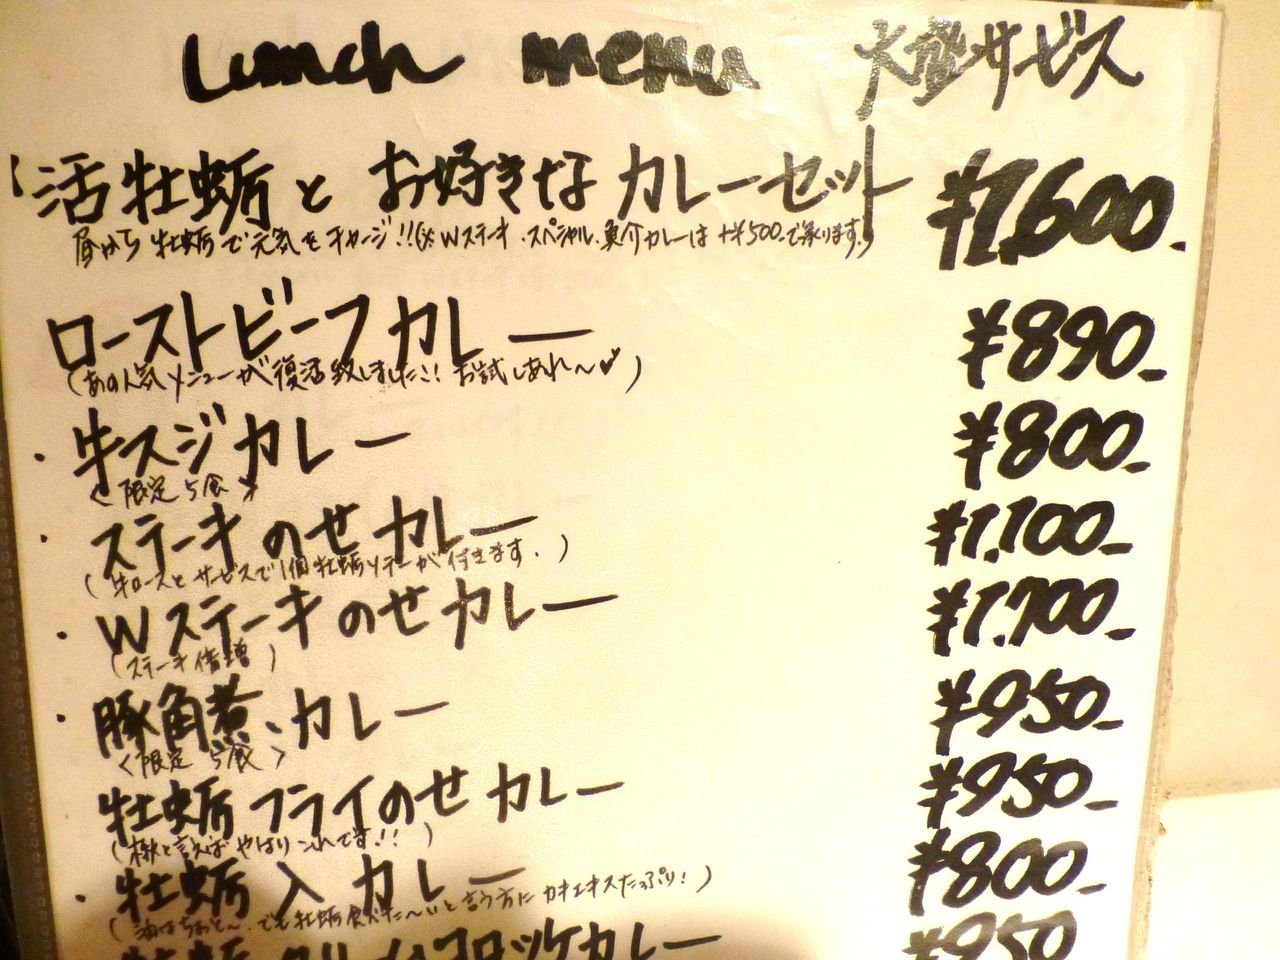 Lunch menu 大盛サービス
活牡蛎とお好きなカレーセット ¥1,600-
昼から牡蛎で元気をチャージ!!(※Wステーキ.スペシャル.魚介カレーは+¥500-で承ります。)
ローストビーフカレー ¥890-
(あの人気メニューが復活致しました!! お試しあれ〜♥)
・牛スジカレー ¥800-
<限定5食>
・ステーキのせカレー ¥1,100-
(牛ロースとサービスで1個牡蛎ソテーが付きます.)
・Wステーキのせカレー ¥1,700-
(ステーキ倍増)
・豚角煮カレー ¥950-
<限定5食>
牡蛎フライのせカレー ¥950-
(と言えばやはりこれです!!)
・牡蛎入カレー ¥800-
(油はちょっと〜.でも牡蛎食べた〜いと言う方に カキエキスたっぷり!)
牡蛎クリームコロッケカレー ¥950